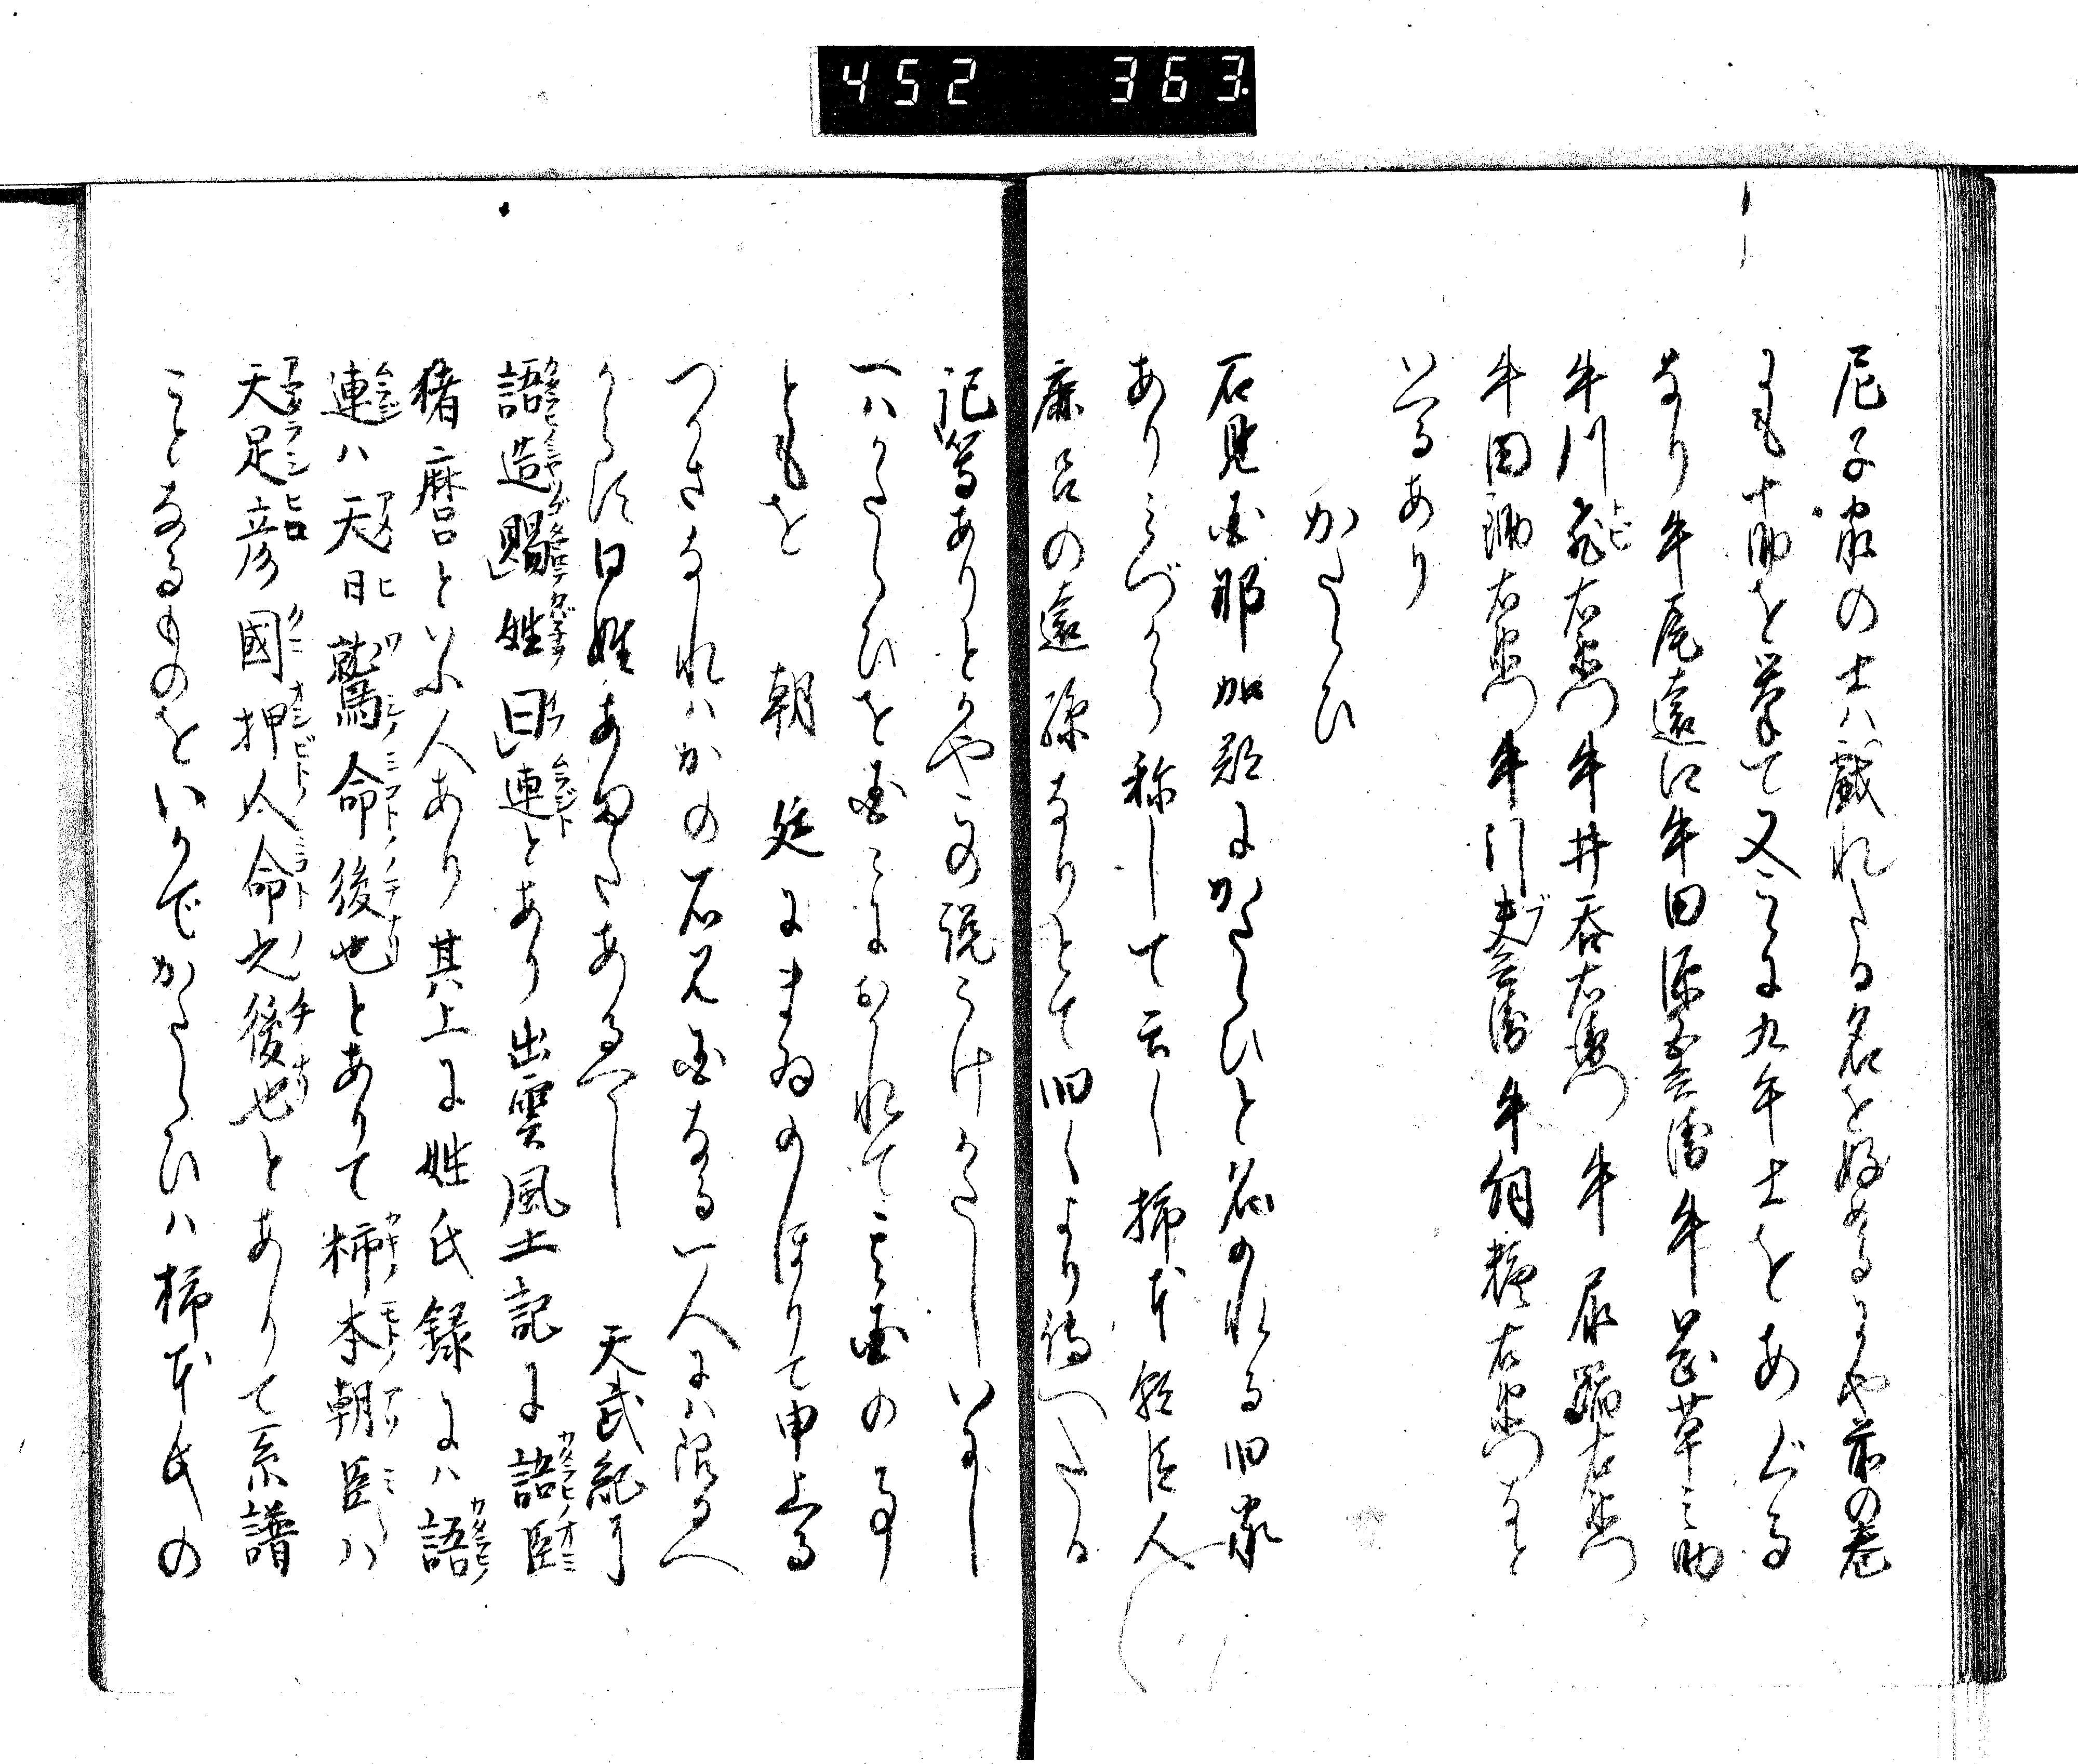 452 363.
尼子家の士ハ戯れたる名を好めるにや前の巻
にも十勇を挙て又こゝに九牛士をあぐる
なり牛尾遠江牛田源五兵衛牛飼草之助
牛川飛右衛門牛井呑右衛門牛尿踏右衛門
牛田鋤右衛門牛引夫兵衛牛飼糠右衛門など
いへるあり
かたらひ
石見国那加郡にかたらひと名のれる旧家
ありみづから称して云く柿本朝臣人
麻呂の遠孫なりとて旧くより傳へたる
記等ありとかや此説うけがたしいにし
へハかたらひを国々におかれて其国の事
ともを 朝廷にまゐのほりて申上る
つかさなれハかの石見国なる一人にハ限るへ
からす此姓あまたあるへし 天武紀に
語造賜姓曰連とあり出雲風土記に語臣
猪麿といふ人あり其上に姓氏録にハ語
連ハ天日鷲命後也とありて柿本朝臣ハ
天足彦國押人命之後也とありて系譜
ことなるものをいかでかかたらひハ柿本氏の